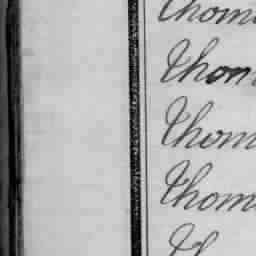 Thom
Thom
Thom
Thom
Th